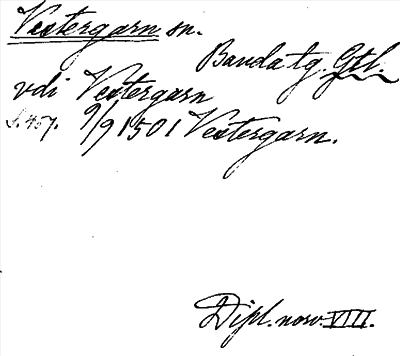 Vestergarn sn.
Banda tg. Gtl.
vdi Vestergarn
s. 457. 9/9 1501 Vestergarn.
Dipl. norv. VIII.